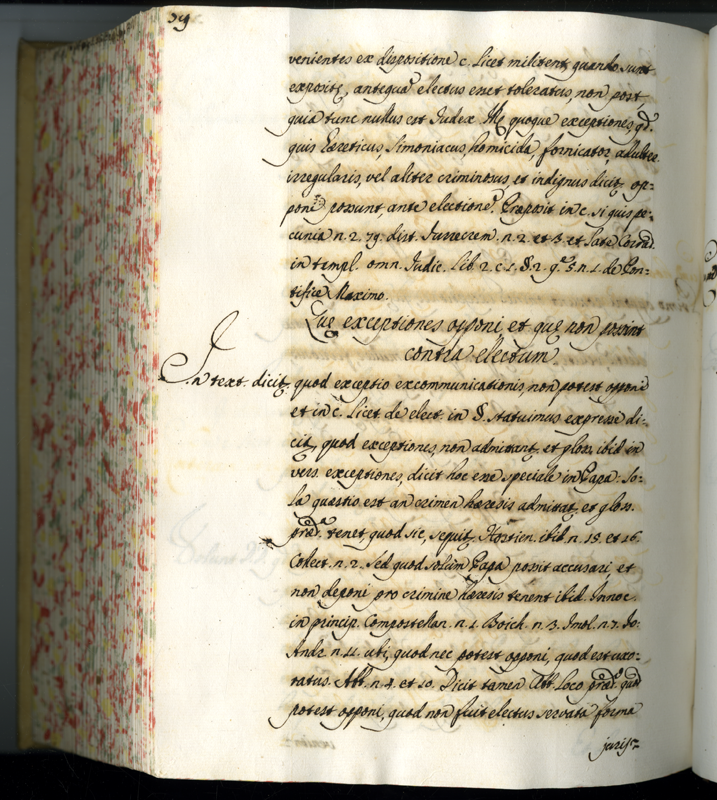 39
venientes ex dispositione c. Licet militent, quando sunt
expositę, antequã electus esset toleratus, non post
quia tunc nullus est Iudex. Illę quoque exceptiones, qd.
quis Hæreticus, Simoniacus, homicida, fornicator, adulter
irregularis, vel aliter criminosus, et indignus dicit, op-
poni possunt, ante electionẽ. Præposit. in c. si quis pe-
cunia n. 2. 79. dist. Turrecrem. n. 2. et 3. et late Corrad.
in templ. omn. Iudic. Lib. 2. c. 1. §. 2. q.ᵃ 5. n. 1. de Pon=
tifice Maximo.
Quę exceptiones opponi, et quę non possint
contra electum
In text. dicit. quod exceptio excommunicationis, non potest opponi
et in c. Licet de elect. in §. statuimus expresse di-
cit, quod exceptiones, non admittant. et glos. ibid. in
vers. exceptiones, dicit hoc esse speciale in Papa. So=
la quæstio est an crimen hæresis admittat, et glos.
præd.ᵃ tenet, quod sic, sequit. Hostien. ibid. n. 15. et 16.
Collect. n. 2. Sed quod solum Papa possit accusari, et
non deponi pro crimine hæresis tenent ibid. Innoc.
in princip. Compostellan. n. 1. Boich. n. 3. Imol. n. 7. Io:
Andr. n. 11. ubi, quod nec potest opponi, quod est uxo=
ratus. Abb. n. 4. et 10. Dicit tamen Abb. Loco præd.º quod
potest opponi, quod non fuit electus servata forma
juris